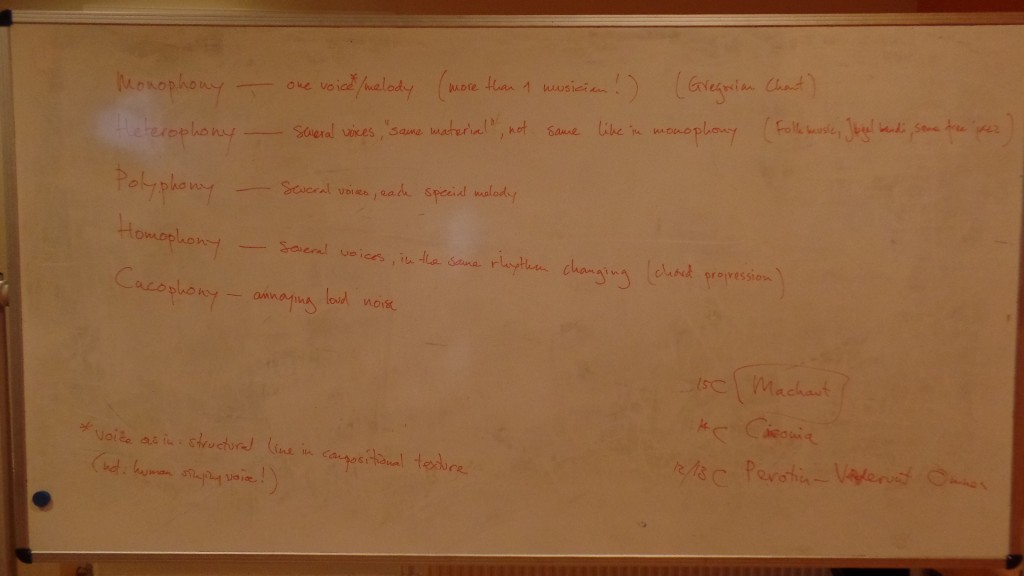 Monophony — one voice*/melody (more than 1 musician!) (Gregorian Chant)
Heterophony — several voices, "same material", not same like in monophony (Folk music, bands, some free jazz)
Polyphony — Several voices, each special melody
Homophony — Several voices, in the same rhythm changing (chord progression)
Cacophony — annoying loud noise
15C Machaut
C Ciconia
12/13C Perotin — Viderunt Omnes
* voice as in structural line in compositional texture
(not human singing voice!)